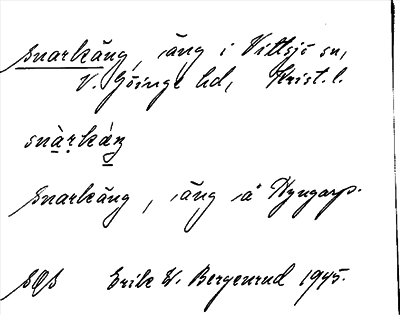 Snarkäng, äng i Vittsjö sn,
V. Göinge hd, Krist. l.
snàrkáŋ
Snarkäng, äng å Nyngarp.
SOS Erik W. Bergenrud 1945.